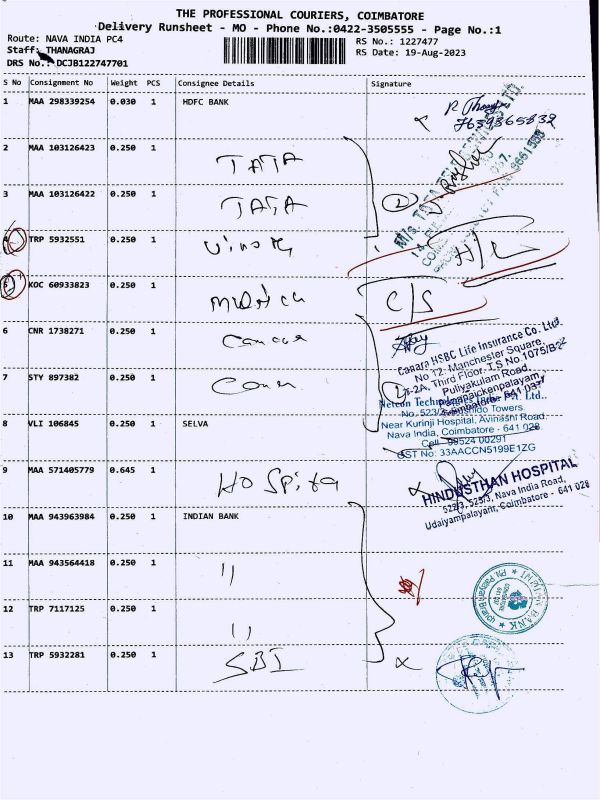 THE PROFESSIONAL COURIERS, COIMBATORE
Delivery Runsheet - MO - Phone No.:0422-3505555 - Page No.:1
Route: NAVA INDIA PC4
RS No.: 1227477
Staff: THANAGRAJ
RS Date: 19-Aug-2023
DRS No.: DCJB122747701
S No Consignment No Weight PCS Consignee Details Signature
1 MAA 298339254 0.030 1 HDFC BANK
7639365832
2 MAA 103126423 0.250 1 TATA
3 MAA 103126422 0.250 1 TATA
4 TRP 5932551 0.250 1
5 KOC 60933823 0.250 1 C/S
6 CNR 1738271 0.250 1
Canara HSBC Life Insurance Co. Ltd
No 12, Manchester Square,
Third Floor, T.S No.1075/B2
Puliyakulam Road,
Pappanaickenpalayam,
Coimbatore - 641 037
7 STY 897382 0.250 1
Pvt. Ltd.,
No. 523/2, Towers
8 VLI 106845 0.250 1 SELVA
Near Kurinji Hospital, Avinashi Road,
Nava India, Coimbatore - 641 028
Cell : 99524 00291
GST No: 33AACCN5199E1ZG
9 MAA 571405779 0.645 1 Hospital
HINDUSTHAN HOSPITAL
522/3, 523/3, Nava India Road,
Udaiyampalayam, Coimbatore - 641 028
10 MAA 943963984 0.250 1 INDIAN BANK
11 MAA 943564418 0.250 1 "
12 TRP 7117125 0.250 1 "
13 TRP 5932281 0.250 1 SBI